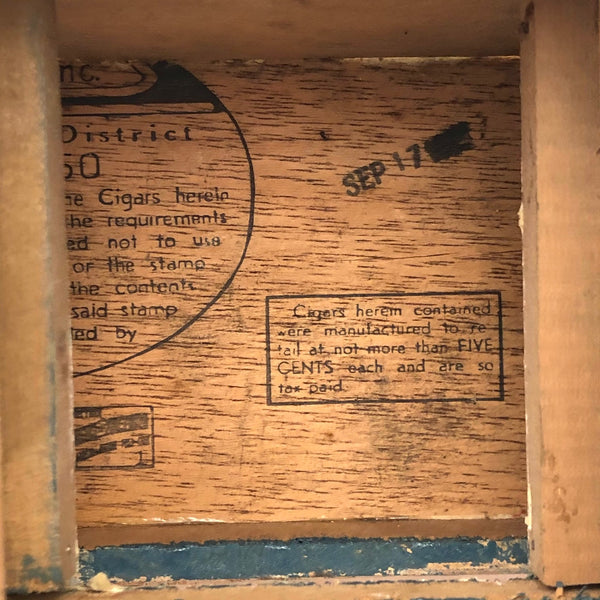 nc.
District
50
he Cigars herein
he requirements
ed not to use
or the stamp
the contents
said stamp
ted by
SEP 17
Cigars herein contained
were manufactured to re
tail at not more than FIVE
CENTS each and are so
tax paid.